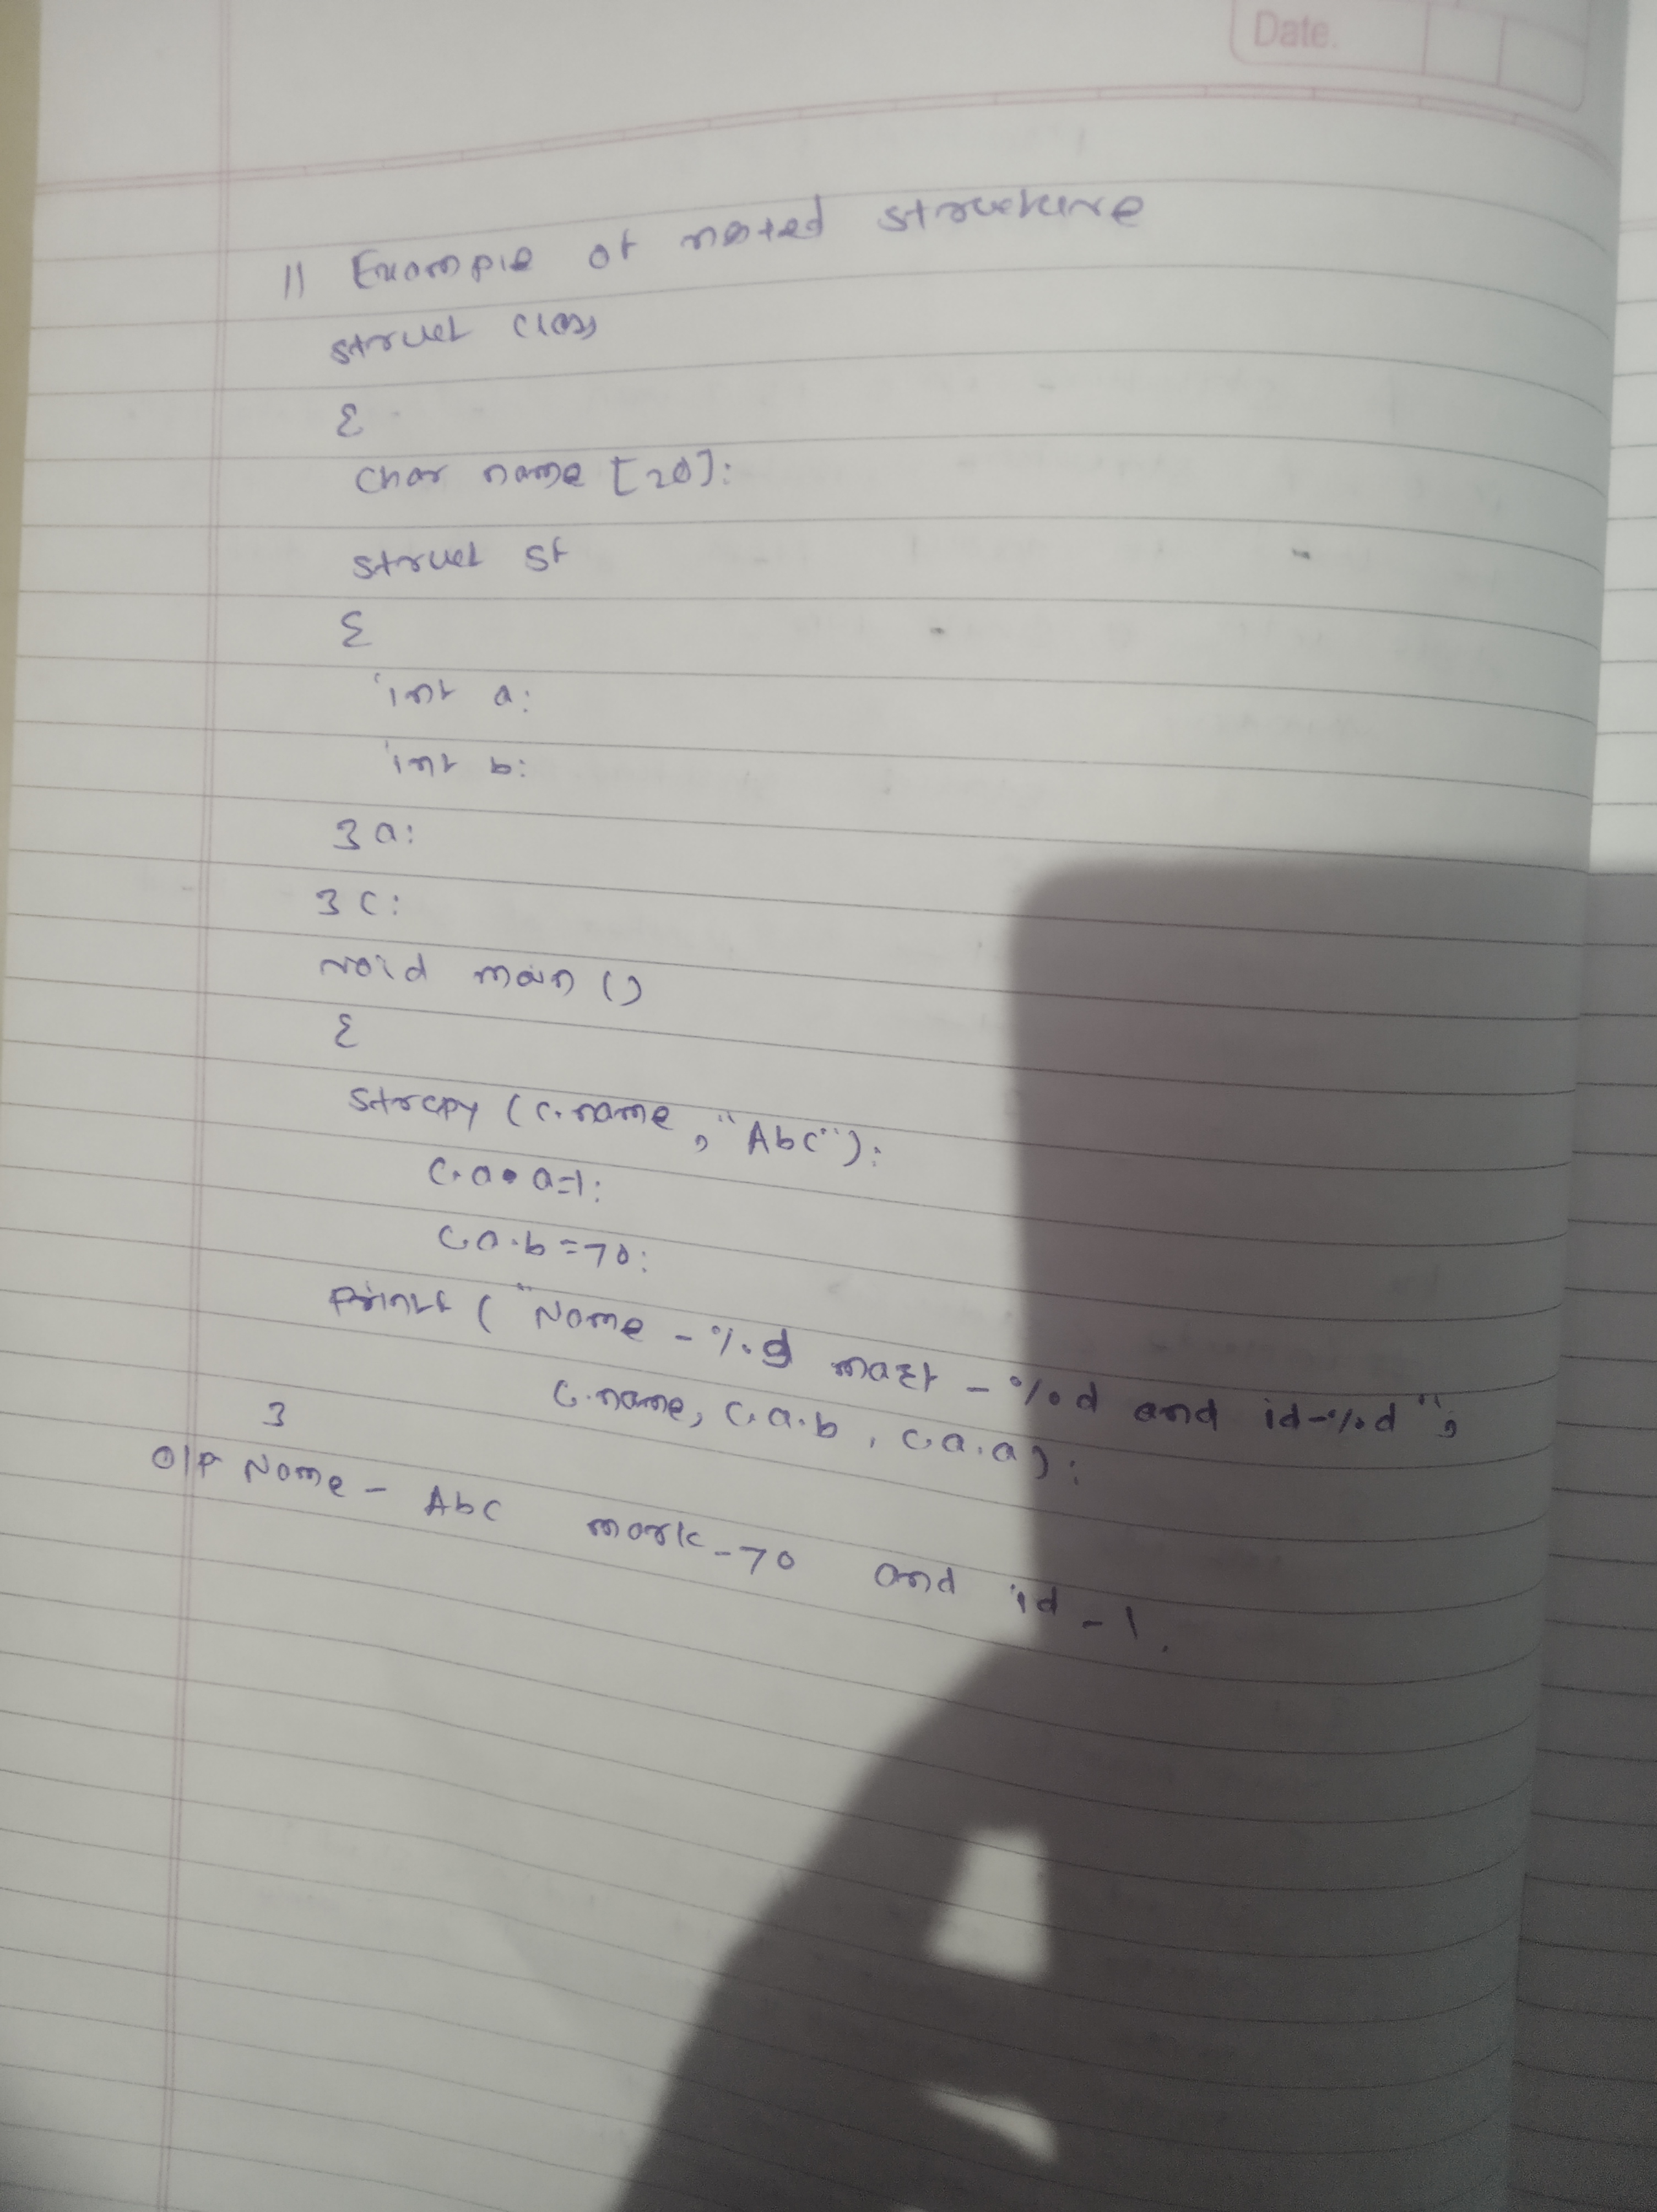 Date.
// Example of nested structure
struct class
{
char name [20];
struct st
{
int a;
int b;
} a;
} c;
void main ()
{
strcpy (c.name, "Abc");
c.a.a=1;
c.a.b=70;
printf ("Name - %s mark - %d and id-%d",
c.name, c.a.b, c.a.a);
}
O/P Name - Abc mark-70 and id-1.